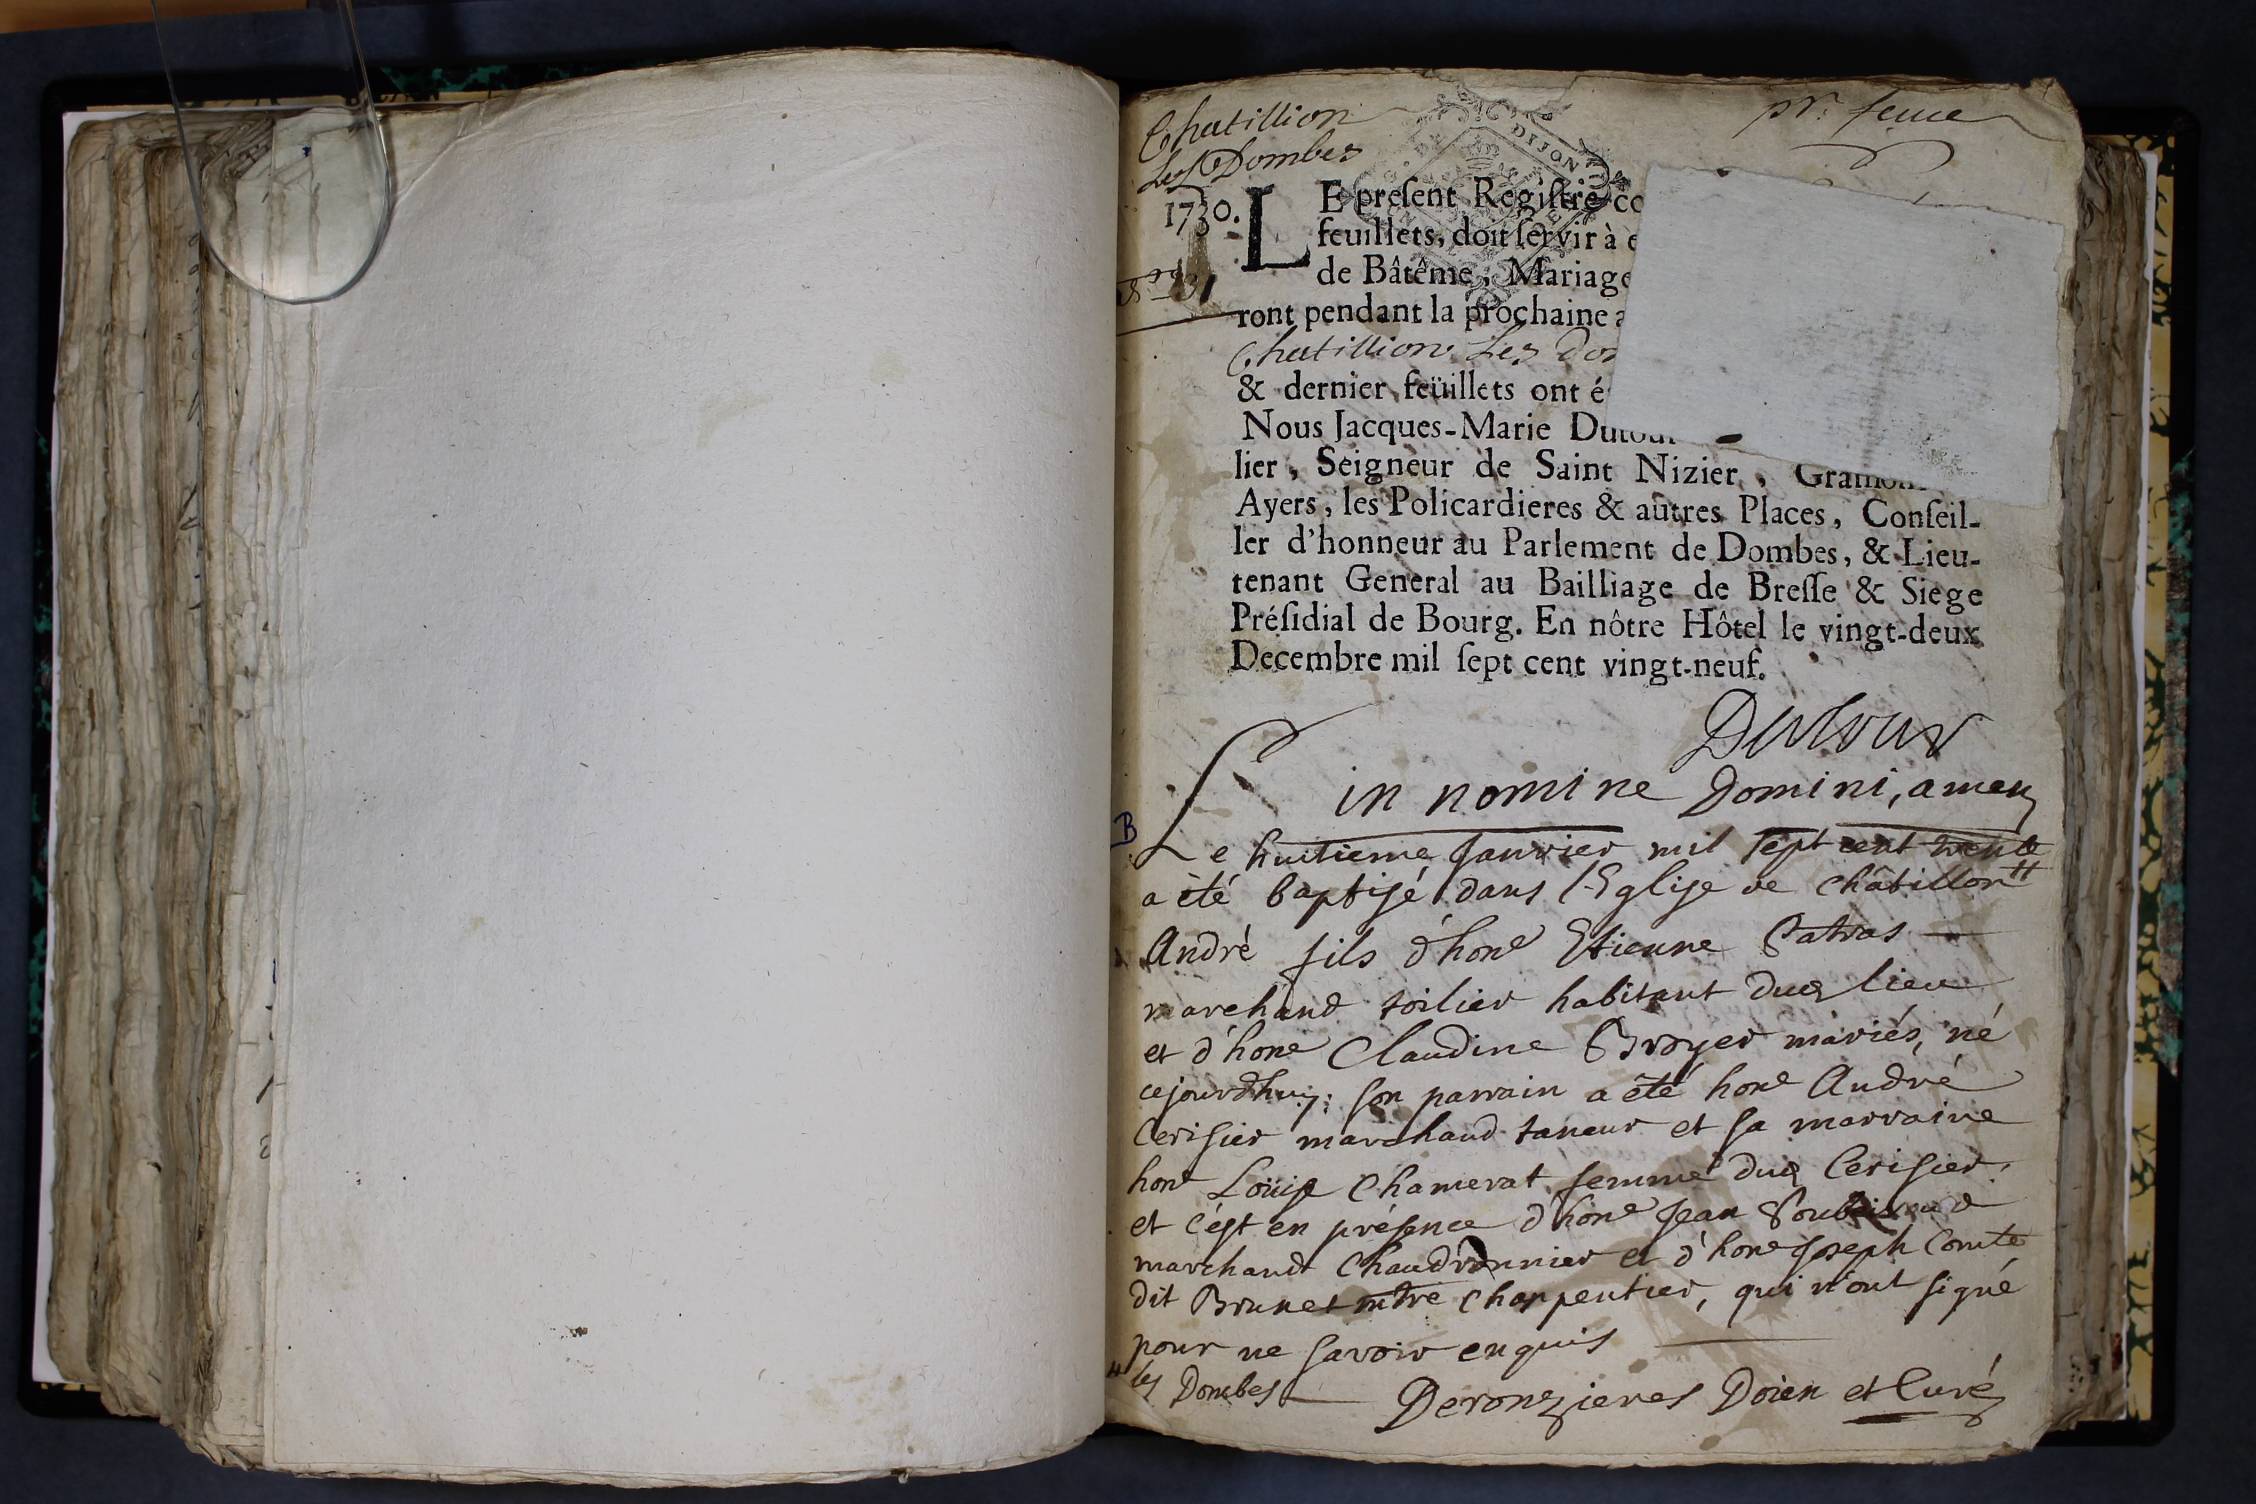 Chatillion
Les Dombes
pr. feuue
1730.
DIJON
LE preſent Regiſtre
feuillets, doit ſervir à
de Bâtême, Mariage
ront pendant la prochaine
Chatillion Les
& dernier feüillets ont
Nous Jacques-Marie Dutour
lier, Seigneur de Saint Nizier,
Ayers, les Policardieres & autres Places, Conſeil-
ler d'honneur au Parlement de Dombes, & Lieu-
tenant General au Bailliage de Breſſe & Siege
Préſidial de Bourg. En nôtre Hôtel le vingt-deux
Decembre mil ſept cent vingt-neuf.
Dutour
in nomine Domini, amen
B
Le huitieme Janvier mil sept cent trente
a êté baptisé dans l'Eglise de châtillon #
André fils d'hone Etienne Patras
marchand toilier habitant dud lieu
et d'hone Claudine Broyer mariés, né
cejourdhuy: son parrain a êté hone André
Cerisier marchand taneur et sa marraine
hone Loüise Chamerat femme dud Cerisier,
et c'est en présence d'hone Jean
marchand Chaudronnier et d'hone Joseph Comte
dit Brunet mtre charpentier, qui n'ont signé
pour ne savoir enquis
# les Dombes Deronzieres Doien et Curé